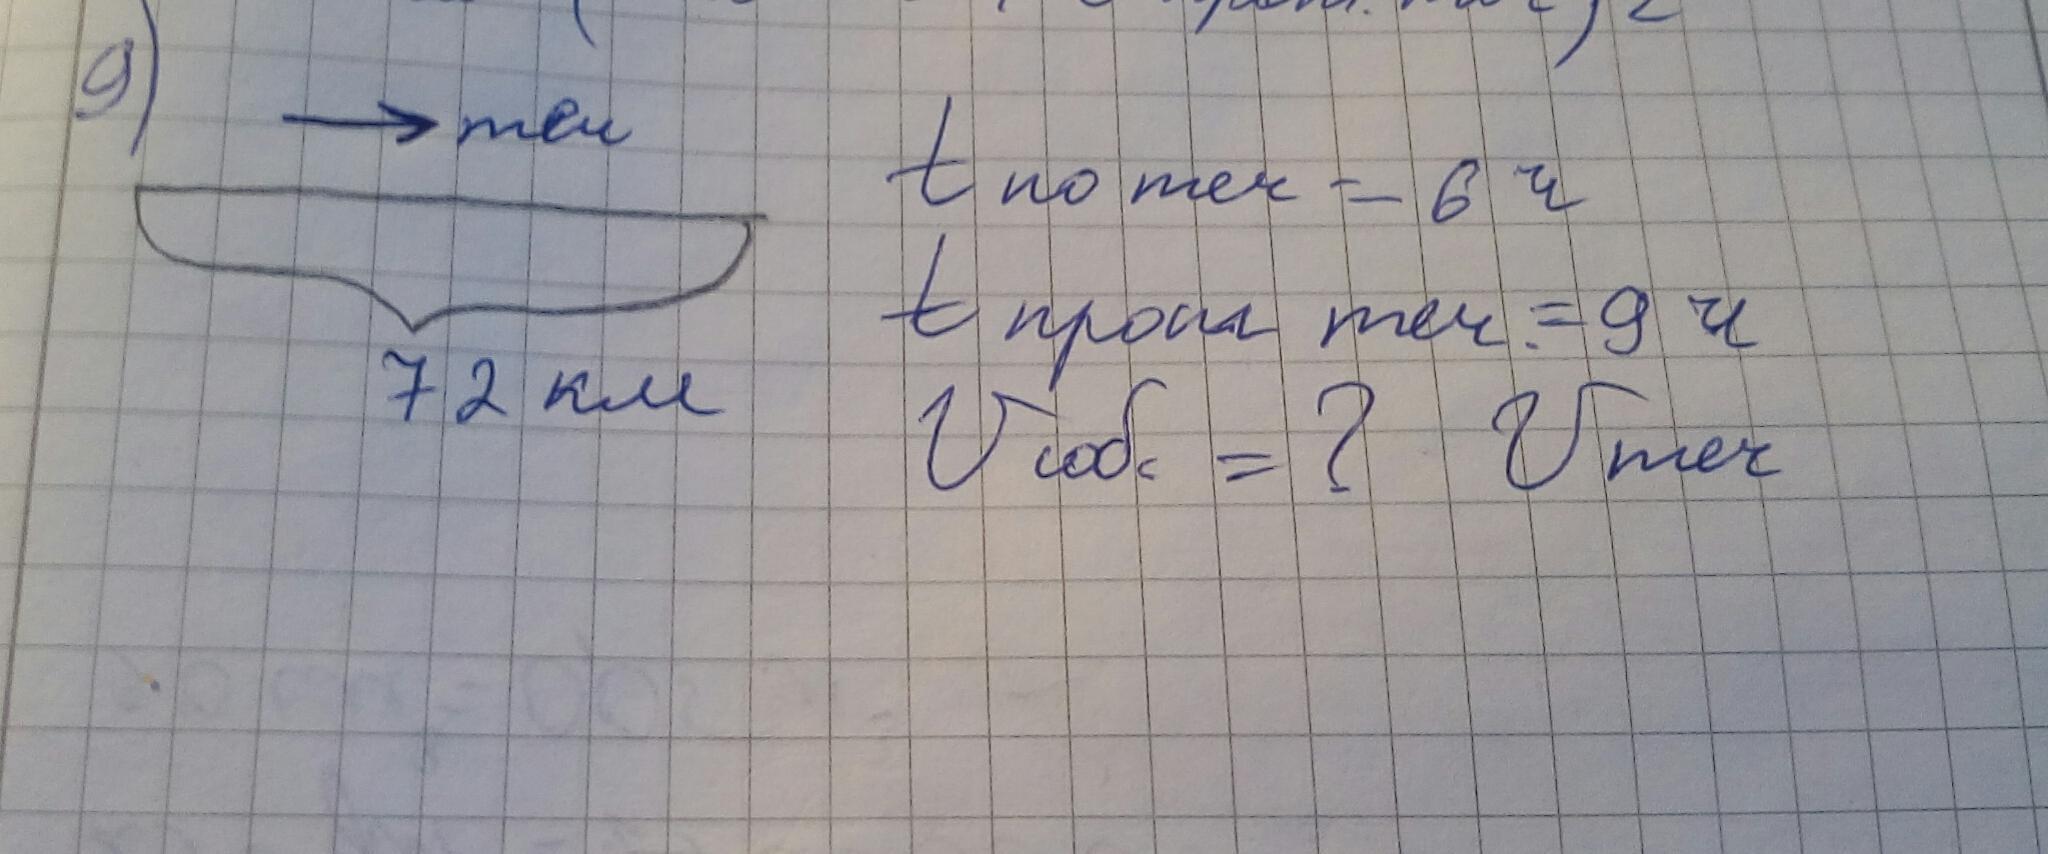 9)
→ теч
72 км
t по теч = 6 ч
t против теч. = 9 ч
V соб. = ? V теч